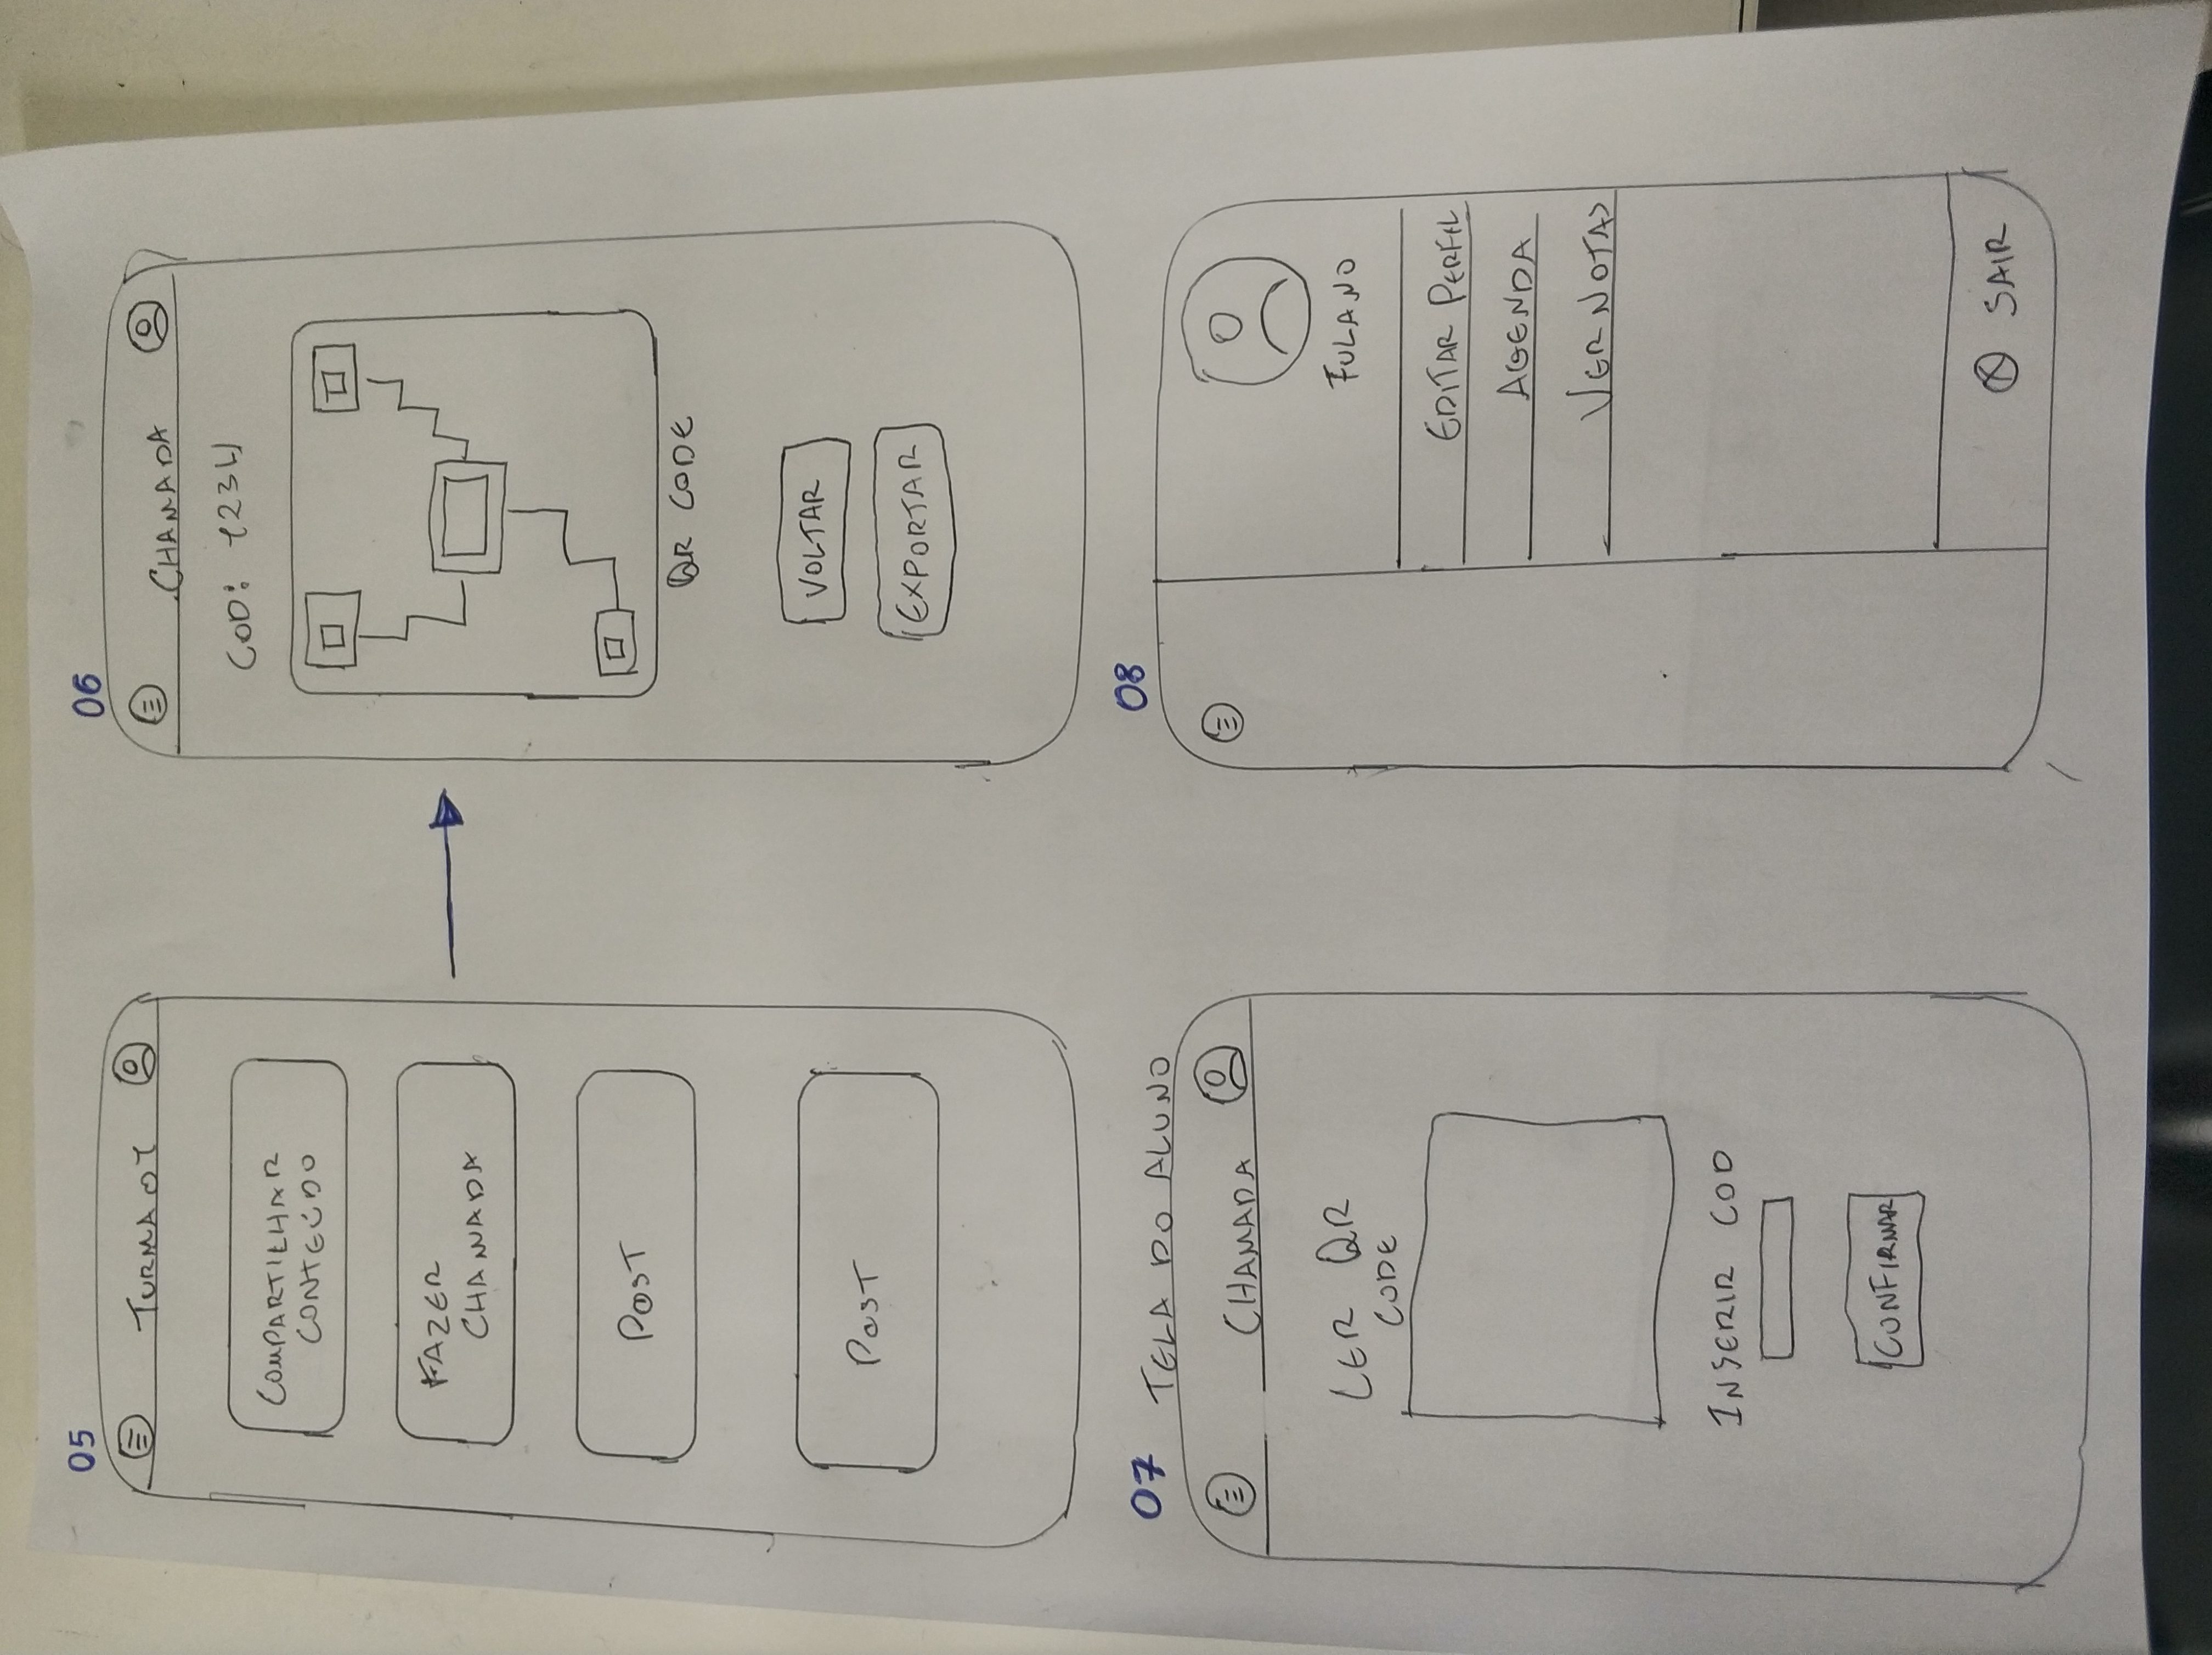 05
TURMA 01
COMPARTILHAR
CONTEÚDO
FAZER
CHAMADA
POST
POST
06
CHAMADA
COD: 1234
QR CODE
VOLTAR
EXPORTAR
07 TELA DO ALUNO
CHAMADA
LER QR
CODE
INSERIR COD
CONFIRMAR
08
FULANO
EDITAR PERFIL
AGENDA
VER NOTAS
SAIR